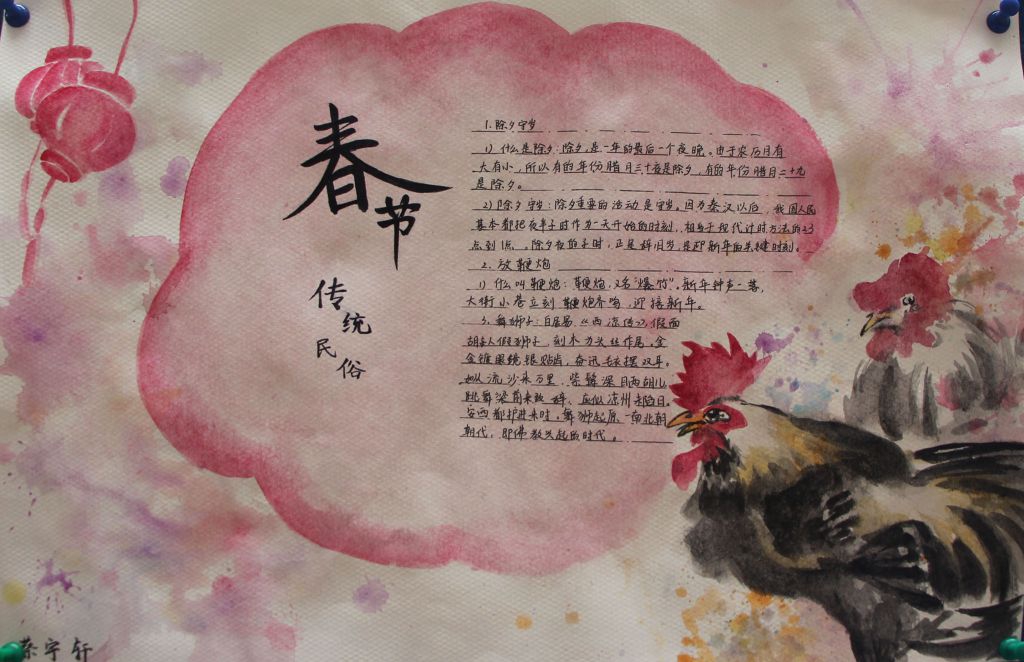 春节
传统
民俗
1. 除夕守岁
1) 什么是除夕:除夕是一年的最后一个夜晚。由于农历月有
大有小,所以有的年份腊月三十夜是除夕,有的年份腊月二十九
是除夕。
2) 除夕守岁:除夕重要的活动是守岁。因为秦汉以后,我国人民
基本都把夜半子时作为一天开始的时刻,相当于现代计时方法的23
点到1点。除夕夜的子时,正是辞旧岁,是迎新年的关键时刻。
2. 放鞭炮
1) 什么叫鞭炮:鞭炮,又名“爆竹”。新年钟声一落,
大街小巷立刻鞭炮齐鸣,迎接新年。
3. 舞狮子:白居易《西凉伎》,假面
胡人假狮子,刻木为头丝作尾。金
金镀眼睛银贴齿,奋迅毛衣摆双耳。
如从流沙来万里,紫髯深目两胡儿,
跳舞梁前来致辞,应似凉州未陷日。
安西都护进来时。舞狮起原南北朝
朝代,即佛教兴起的时代。
宇轩